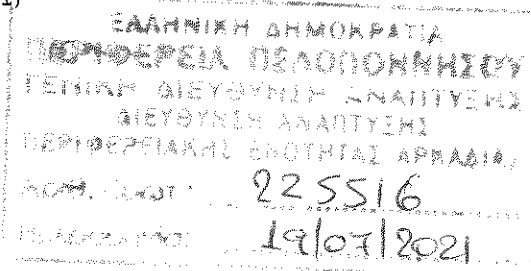 1)
ΕΛΛΗΝΙΚΗ ΔΗΜΟΚΡΑΤΙΑ
ΠΕΡΙΦΕΡΕΙΑ ΠΕΛΟΠΟΝΝΗΣΟΥ
ΓΕΝΙΚΗ ΔΙΕΥΘΥΝΣΗ ΑΝΑΠΤΥΞΗΣ
ΔΙΕΥΘΥΝΣΗ ΑΝΑΠΤΥΞΗΣ
ΠΕΡΙΦΕΡΕΙΑΚΗΣ ΕΝΟΤΗΤΑΣ ΑΡΚΑΔΙΑΣ
225516
19/07/2021